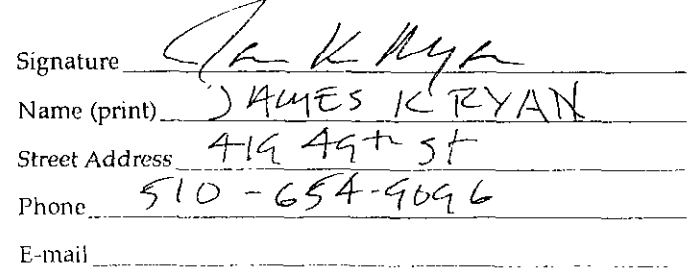 Signature Jam K Ryan
Name (print) JAMES K RYAN
Street Address 419 49th St
Phone 510-654-9096
E-mail